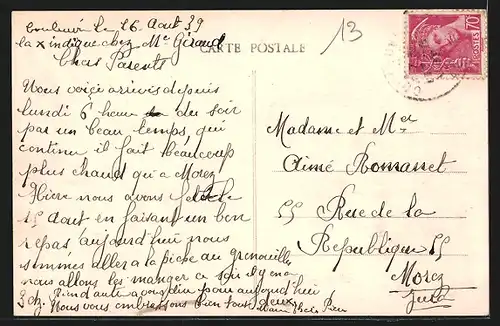 Toulouvre Le 16 Aout 39
la x indique chez Me Giraud
Chers Parents
CARTE POSTALE
13
Vous voici arrivés depuis
lundi 6 heure du soir
par un beau temps, qui
continue il fait beaucoup
plus chaud qu'a Morez
Hier nous avons fete le
15 aout en faisant un bon
repas aujourd'hui nous
sommes aller a la pêche au grenouilles
nous allons les manger ce soir il y en a
3 dz. Rien d'autre a vous dire pour aujourd'hui
Nous vous embrassons bien tout deux
Madame et Mer
Aimé Romanet
55 Rue de la
Republique 55
Morez
Jura
POSTES
70